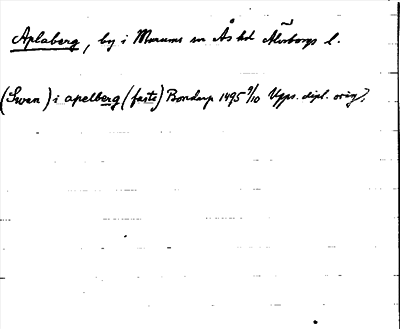 Aplaberg, by i Månums sn Ås hd Älvsborgs l.
(Swen) i apelberg (faste) Bondarp 1495 9/10 Upps. dipl. orig.